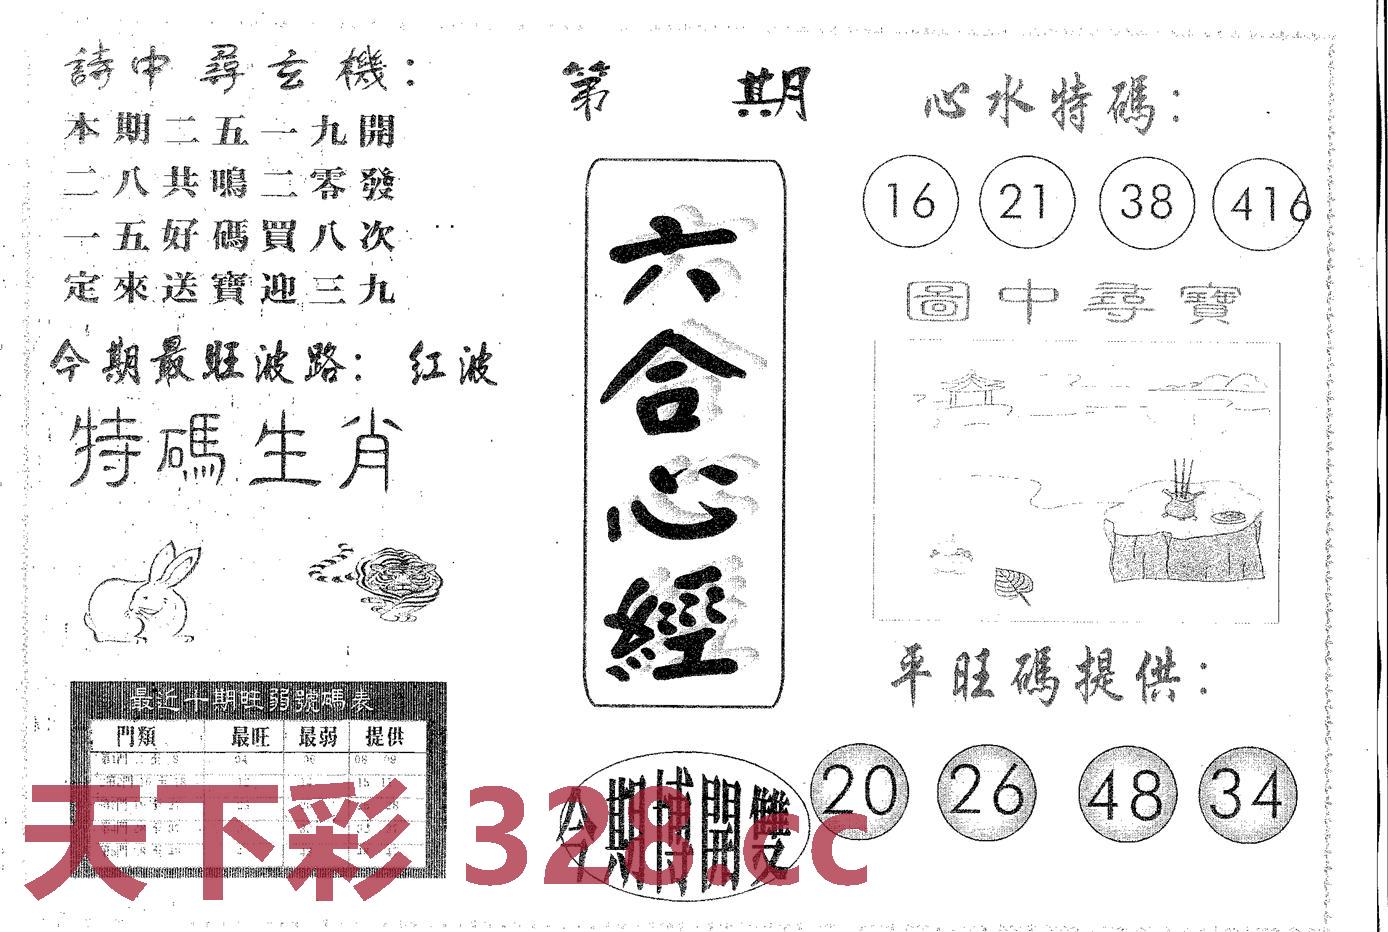 詩中尋玄機：
本期二五一九開
二八共鳴二零發
一五好碼買八次
定來送寶迎三九
今期最旺波路：紅波
特碼生肖
最近十期旺弱號碼表
門類 最旺 最弱 提供
第 期
六合心經
今期博開雙
心水特碼：
16 21 38 416
圖中尋寶
平旺碼提供：
20 26 48 34
天下彩 328.cc